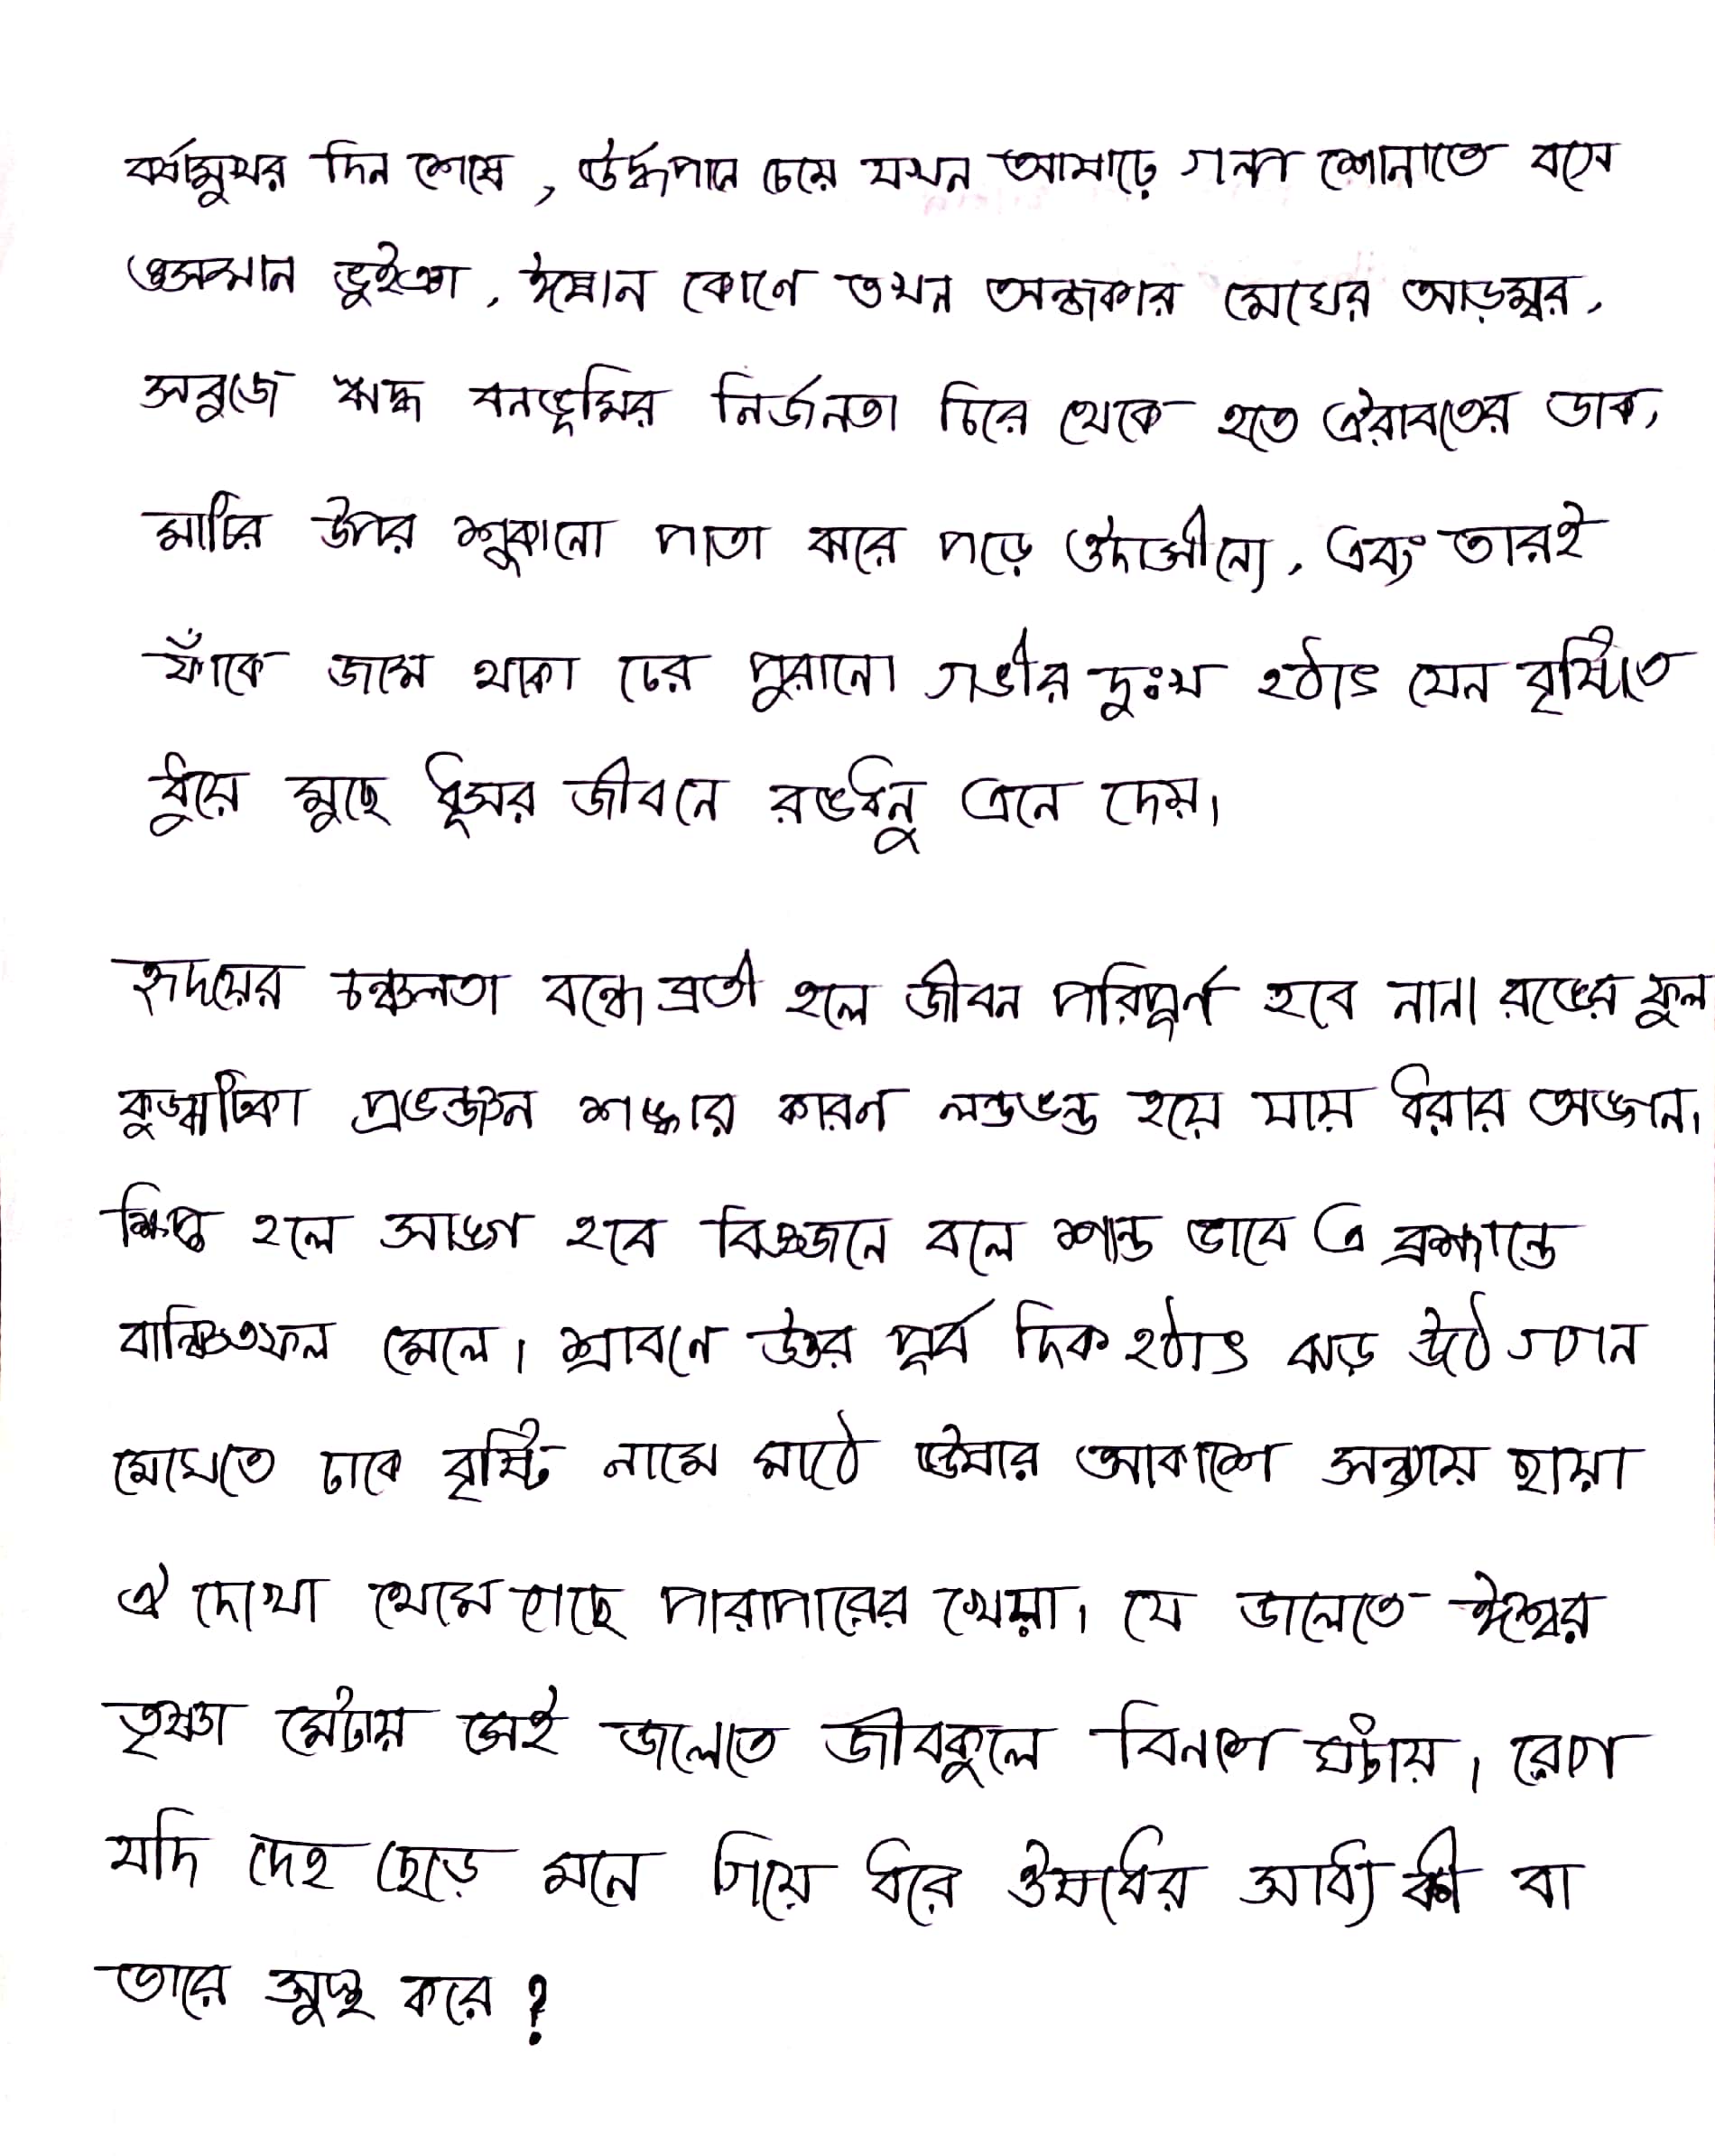 বর্ষামুখর দিন শেষে, উর্দ্ধপানে চেয়ে যখন আষাঢ়ে গল্প শোনাতে বসে
ওসমান ভুইঞা, ঈষান কোণে তখন অন্ধকার মেঘের আড়ম্বর,
সবুজে ঋদ্ধ বনভূমির নির্জনতা চিরে থেকে হতে ঐরাবতের ডাক,
মাটির উপর শুকানো পাতা ঝরে পড়ে ঔদাসীন্যে, এবং তারই
ফাঁকে জমে থাকা ঢের পুরানো গভীর দুঃখ হঠাৎ যেন বৃষ্টিতে
ধুয়ে মুছে ধূসর জীবনে রঙধনু এনে দেয়।
হৃদয়ের চঞ্চলতা বন্ধে ব্রতী হলে জীবন পরিপূর্ন হবে নানা রঙের ফুল
কুজ্ঝটিকা প্রভঞ্জন শঙ্কার কারন লন্ডভন্ড হয়ে যায় ধরার অঙ্গন।
ক্ষিপ্ত হলে সাঙ্গ হবে বিজ্ঞজনে বলে শান্ত ভাবে এ ব্রহ্মান্ডে
বাঞ্ছিতফল মেলে। শ্রাবনে উত্তর পূর্ব দিক হঠাৎ ঝড় উঠে গগন
মেঘেতে ঢাকে বৃষ্টি নামে মাঠে উষার আকাশে সন্ধ্যায় ছায়া
ঐ দেখো থেমে গেছে পারাপারের খেয়া। যে জলেতে ঈশ্বর
তৃষ্ণা মেটায় সেই জলেতে জীবকুলে বিনাশ ঘটায়। রোগ
যদি দেহ ছেড়ে মনে গিয়ে ধরে ঔষধের সাধ্য কী বা
তারে সুস্থ করে?